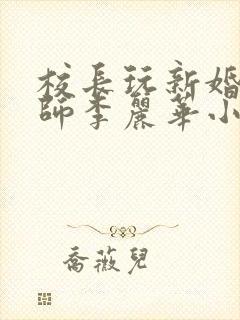 校長玩新婚
師李麗華小
喬薇兒